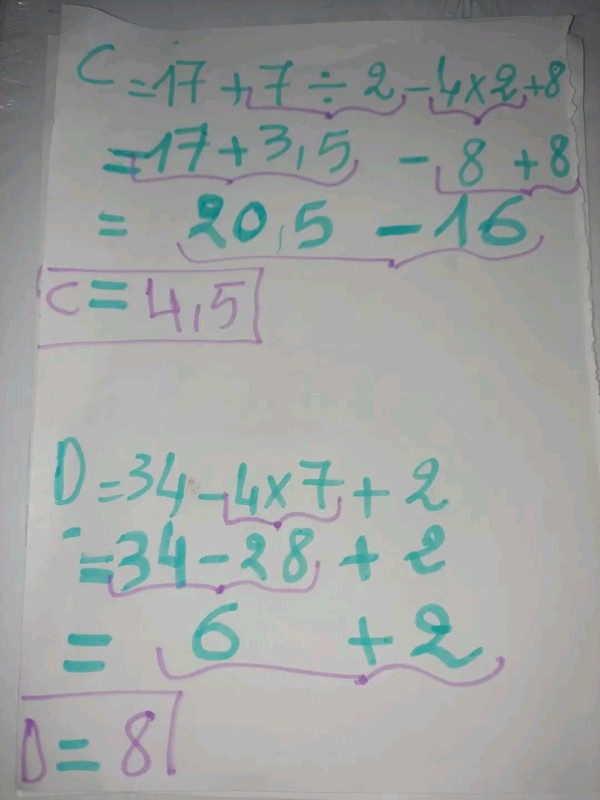 C = 17 + 7 ÷ 2 - 4 x 2 + 8
= 17 + 3,5 - 8 + 8
= 20,5 - 16
C = 4,5
D = 34 - 4 x 7 + 2
= 34 - 28 + 2
= 6 + 2
D = 8